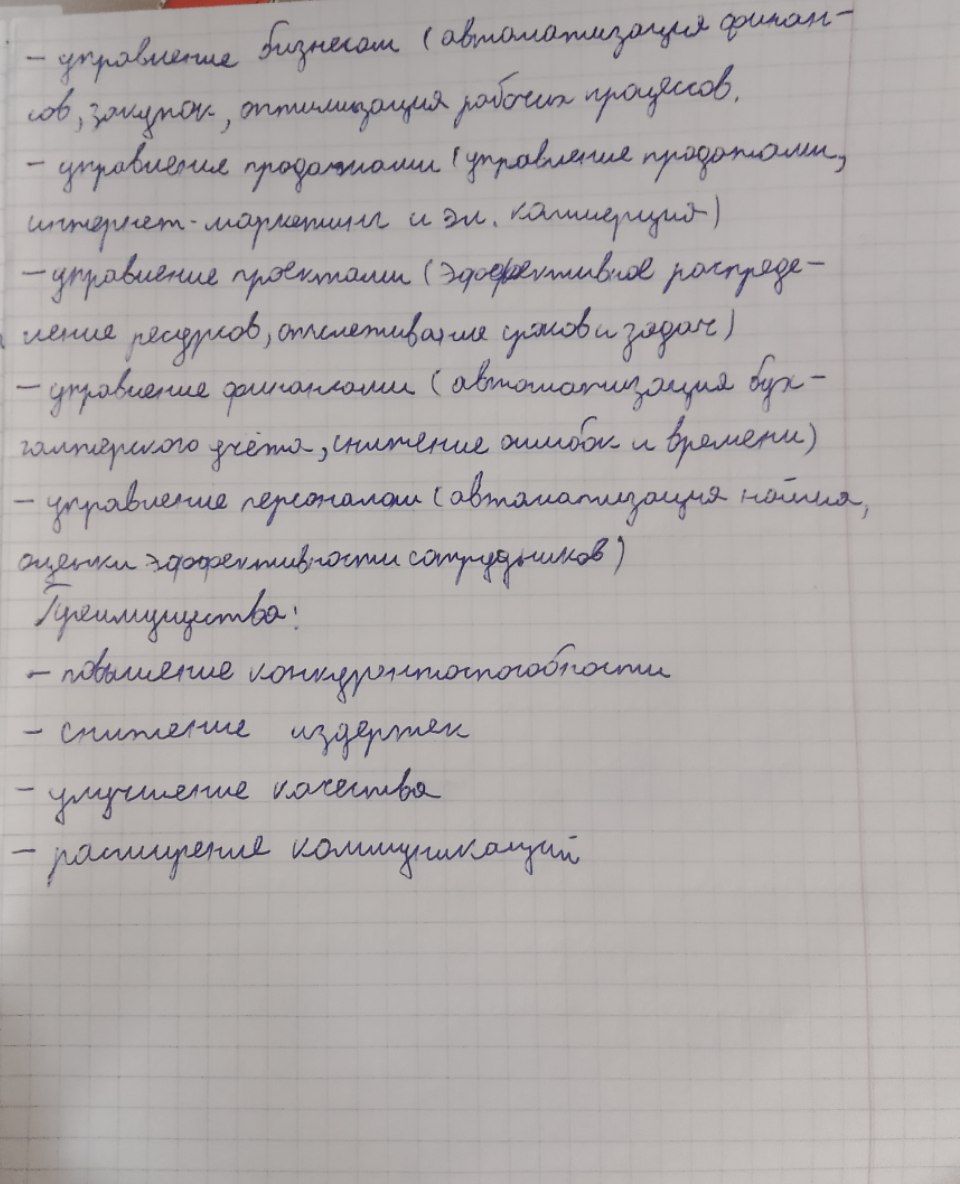 - управление бизнесом (автоматизация финан-
сов, закупок, оптимизация рабочих процессов.
- управление продажами (управление продажами,
интернет-маркетинг и эл. коммерция)
- управление проектами (эффективное распреде-
ление ресурсов, отслеживание сроков и задач)
- управление финансами (автоматизация бух-
галтерского учёта, снижение ошибок и времени)
- управление персоналом (автоматизация найма,
оценки эффективности сотрудников)
Преимущества:
- повышение конкурентоспособности
- снижение издержек
- улучшение качества
- расширение коммуникаций